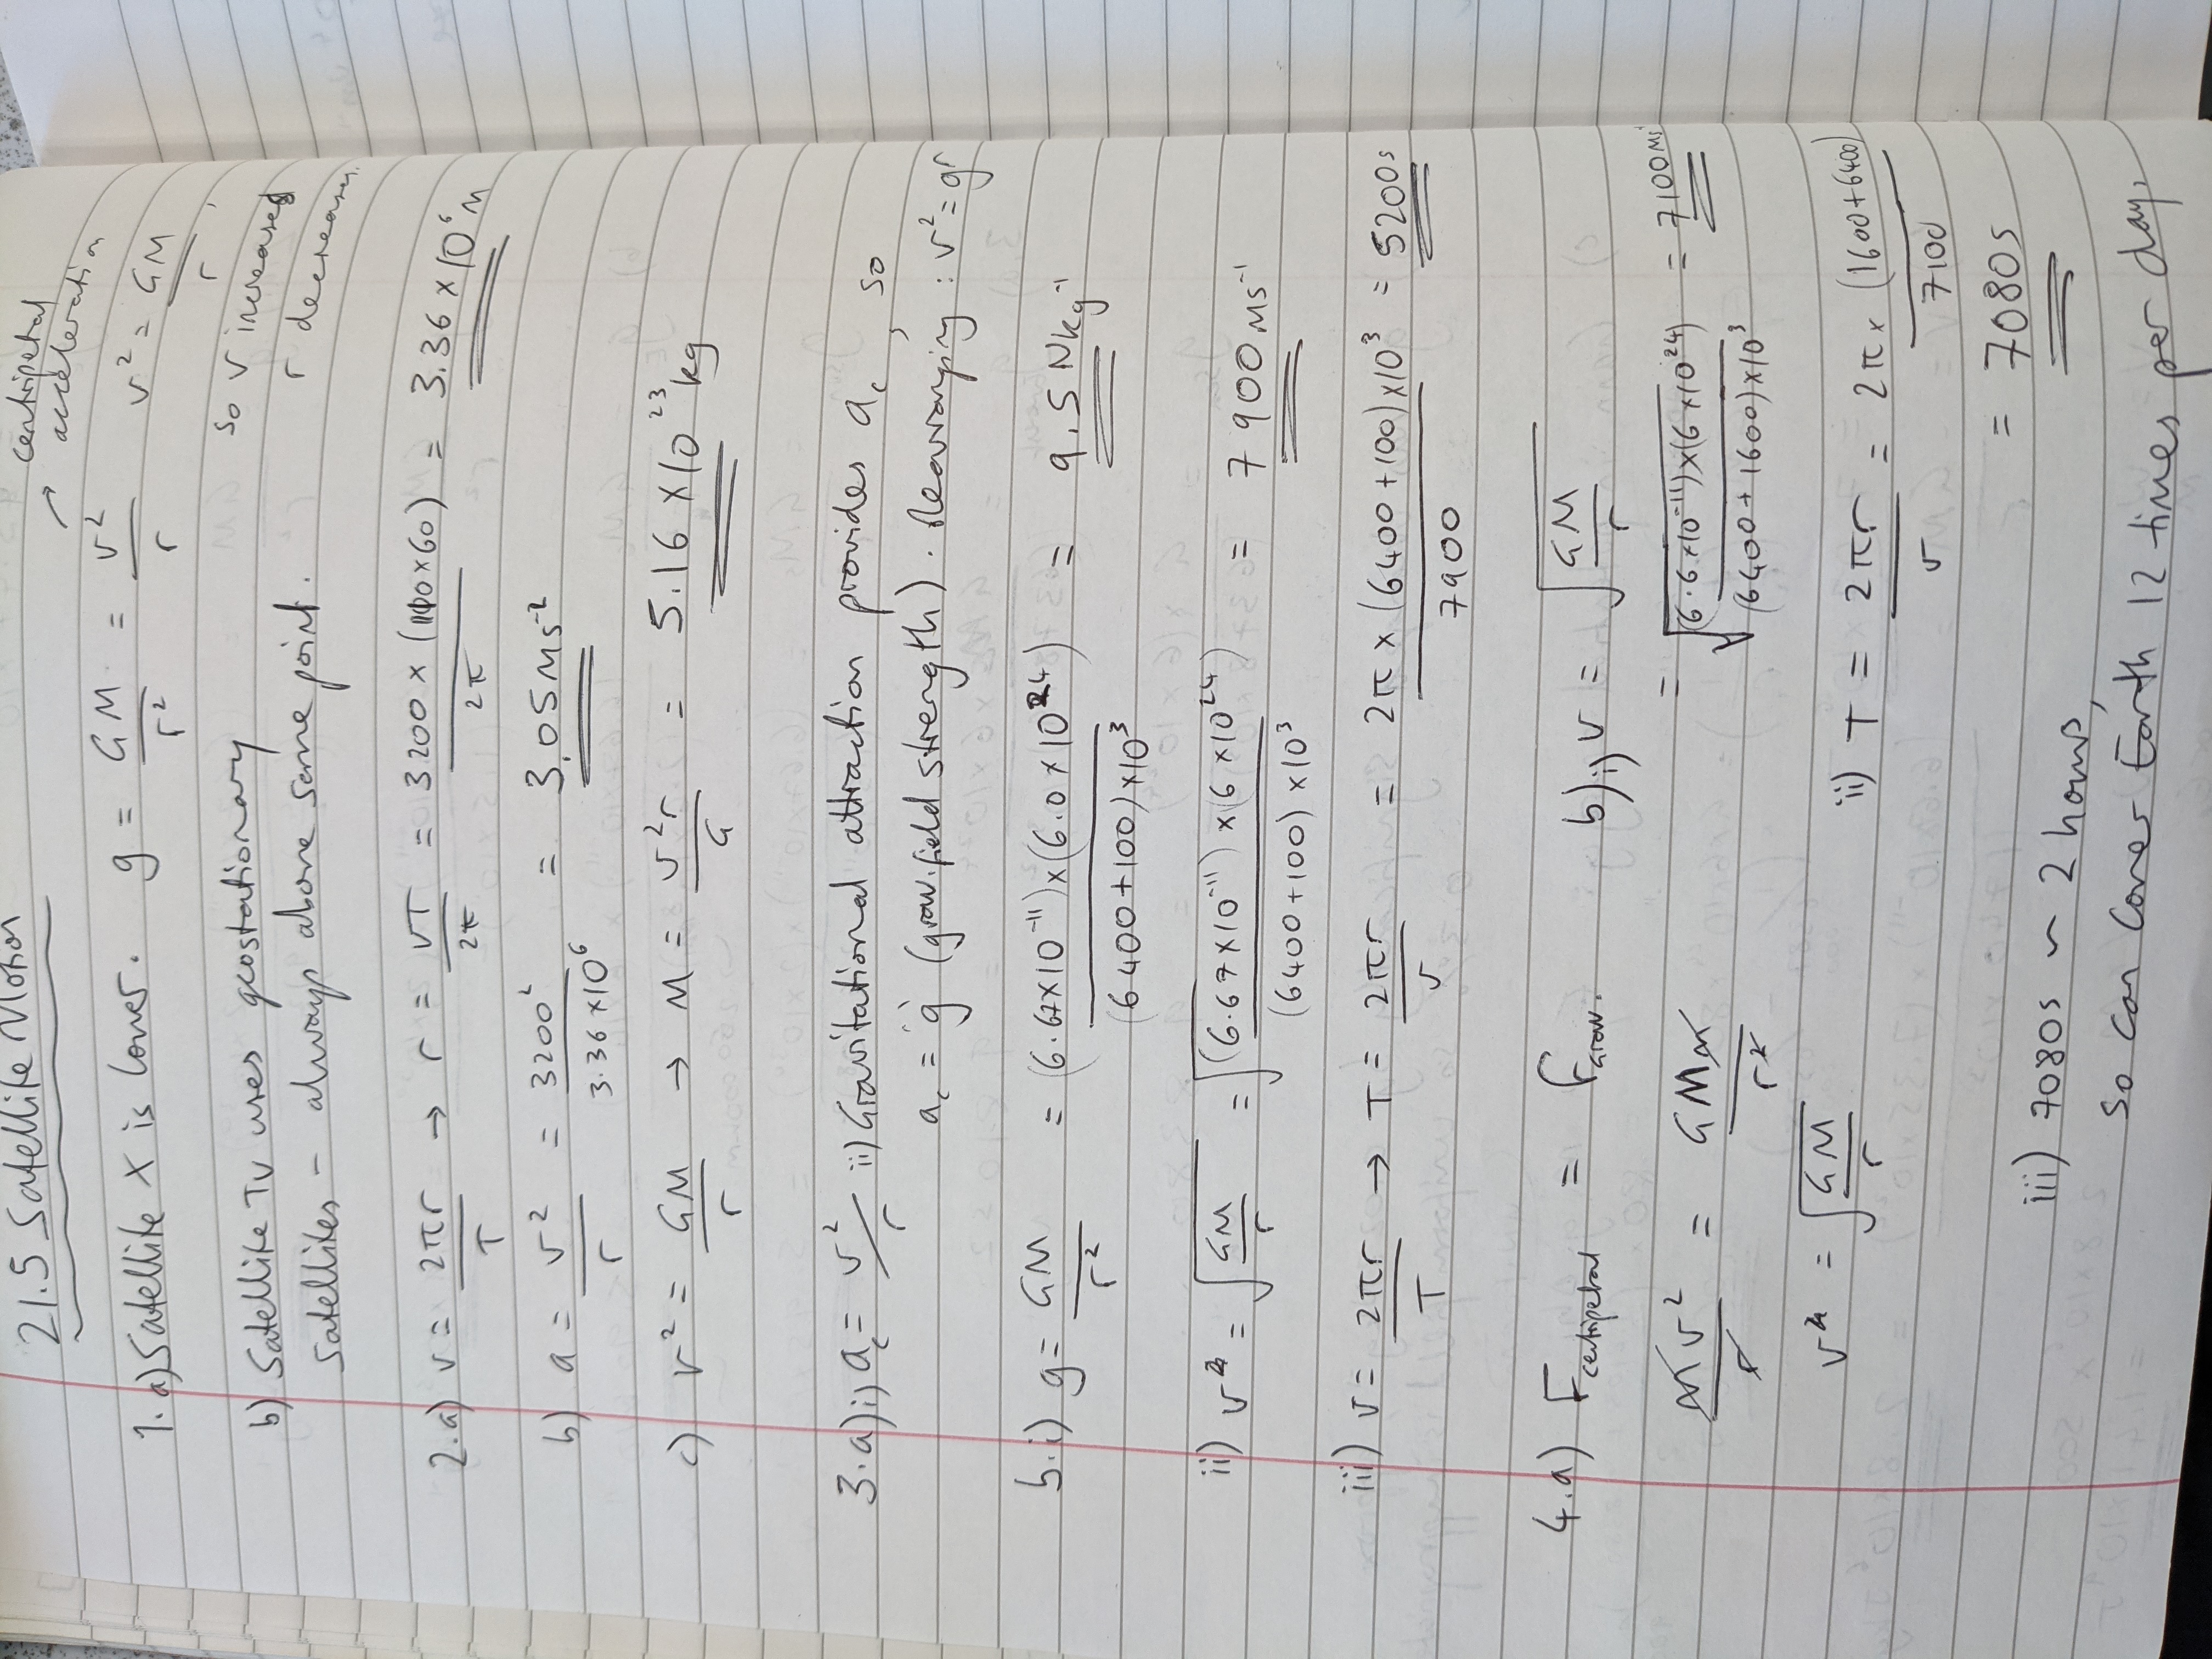 21.5 Satellite Motion
centripetal
acceleration
1.a) Satellite X is lower. g = GM/r² = v²/r v² = GM/r,
so v increases
b) Satellite TV uses geostationary r decreases.
satellites - always above same point.
2.a) v = 2πr/T → r = vT/2π = 3200 × (110×60)/2π = 3.36 × 10⁶ m
b) a = v²/r = 3200²/3.36 × 10⁶ = 3.05 ms⁻²
c) v² = GM/r → M = v²r/G = 5.16 × 10²³ kg
3.a)i) a꜀ = v²/r ii) Gravitational attraction provides a꜀, so
a꜀ = g (grav. field strength). Rearranging : v² = gr
b.i) g = GM/r² = (6.67×10⁻¹¹)×(6.0×10²⁴)/(6400+100)×10³ = 9.5 Nkg⁻¹
ii) v = √GM/r = √(6.67×10⁻¹¹)×(6×10²⁴)/(6400+100)×10³ = 7900 ms⁻¹
iii) v = 2πr/T → T = 2πr/v = 2π×(6400+100)×10³/7900 = 5200s
4.a) F centripetal = F Grav. b)i) v = √GM/r
mv²/r = GMm/r² = √(6.6×10⁻¹¹)×(6×10²⁴)/(6400+1600)×10³ = 7100 ms¹
v = √GM/r ii) T = 2πr/v = 2π×(1600+6400)/7100
= 7080s
iii) 7080s ~ 2 hours,
so can cover Earth 12 times per day.